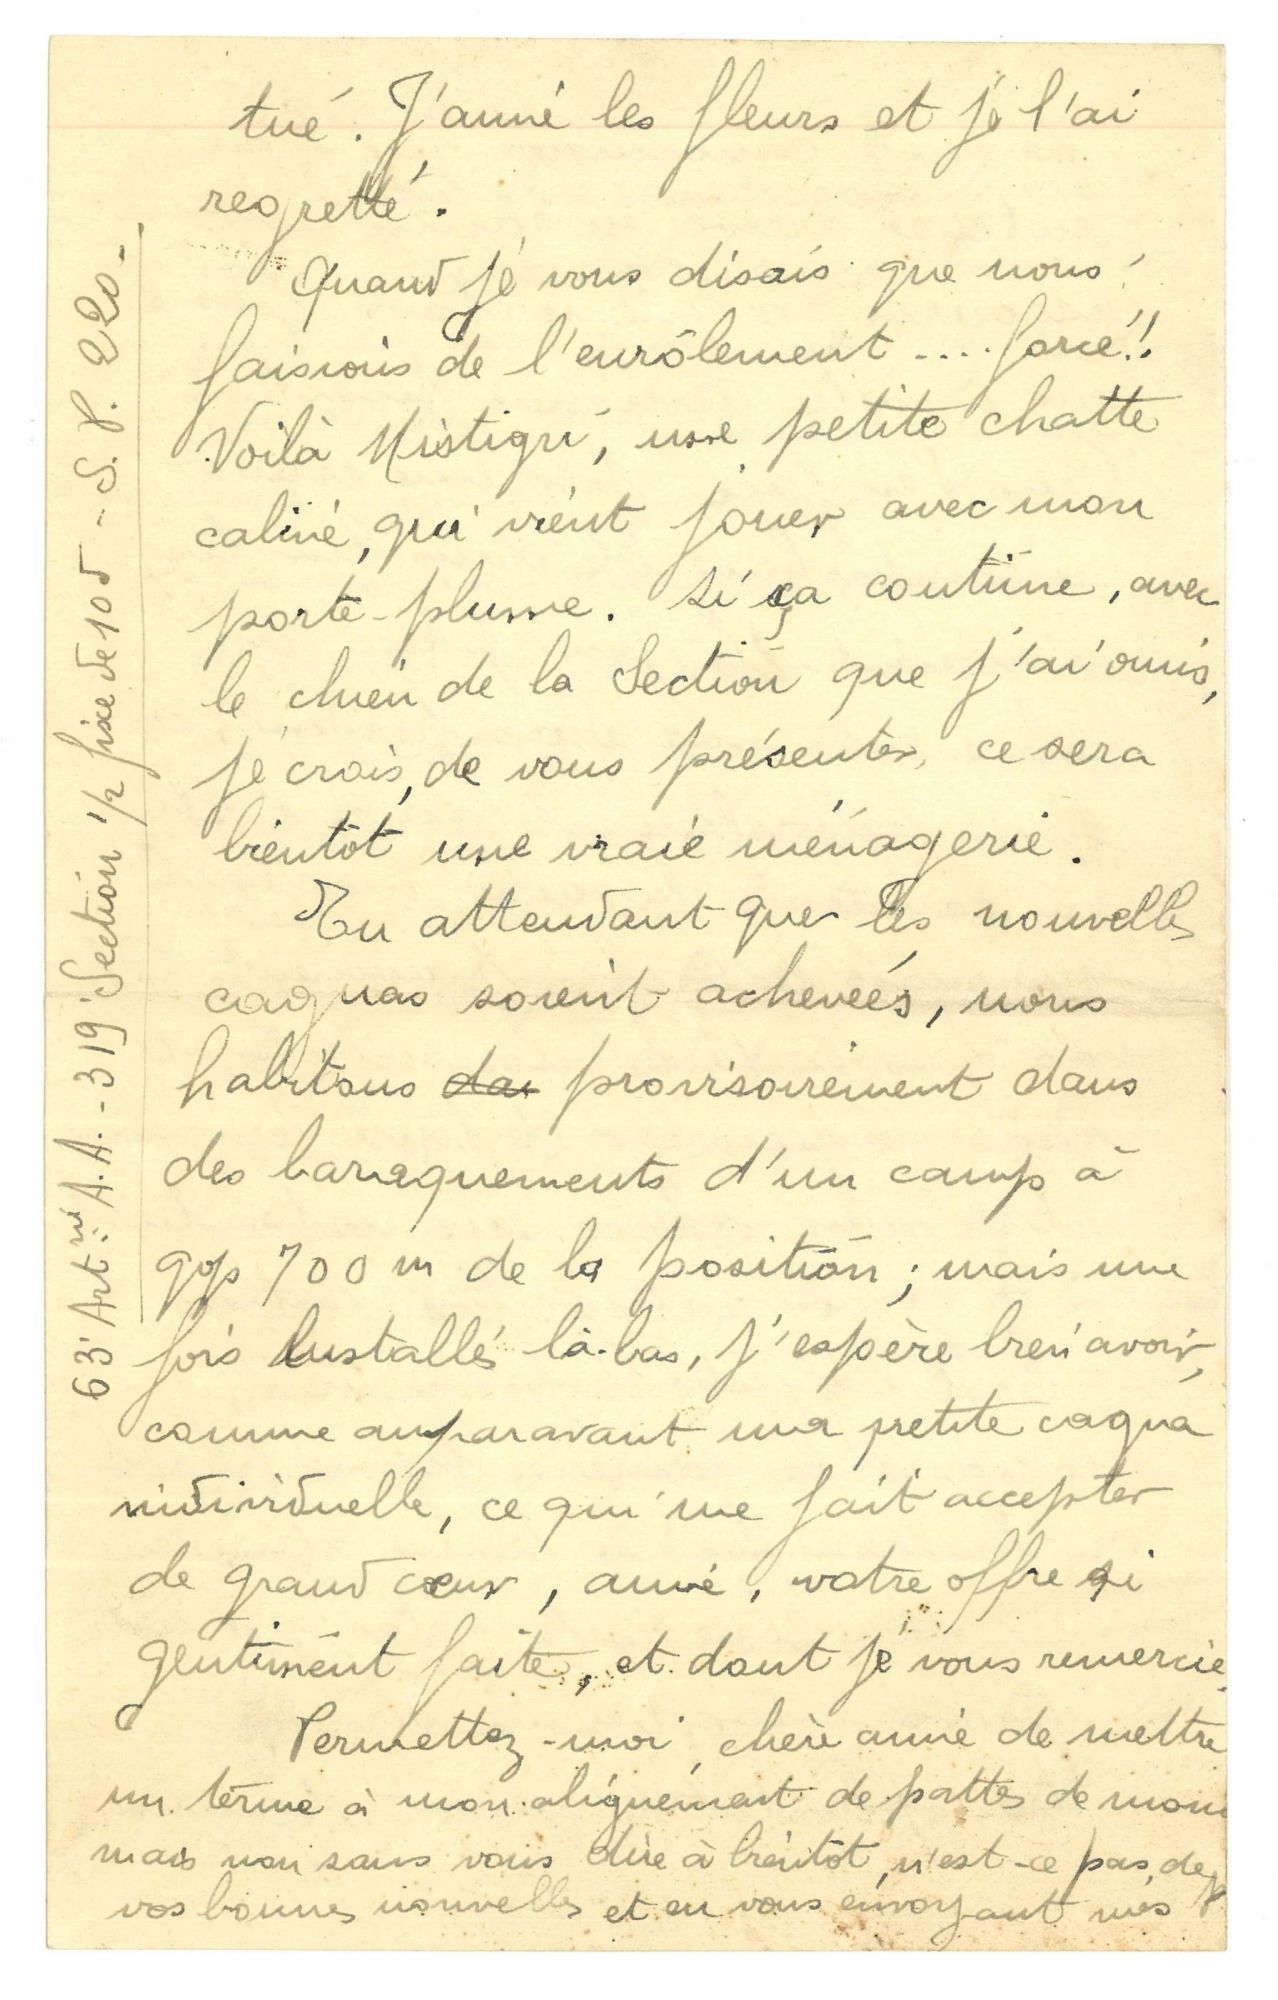 tué. J'aime les fleurs et je l'ai
regretté.
Quand je vous disais que nous
faisions de l'enrôlement .... forcé!!
Voilà Mistigri, une petite chatte
caline, qui vient jouer avec mon
porte-plume. Si ça continue, avec
le chien de la Section que j'ai omis,
je crois, de vous présenter, ce sera
bientôt une vraie ménagerie.
En attendant que les nouvelles
cagnas soient achevées, nous
habitons da provisoirement dans
des baraquements d'un camp à
qqs 700 m de la position ; mais une
fois installés là-bas, j'espère bien avoir,
comme auparavant une petite cagna
individuelle, ce qui me fait accepter
de grand cœur, amie, votre offre si
gentiment faite, et dont je vous remercie.
Permettez-moi chère amie de mettre
un terme à mon alignement de pattes de
mais non sans vous dire à bientôt, n'est-ce pas, de
vos bonnes nouvelles et en vous envoyant mes
63e Artie A.A. - 319e Section 1/2 fixe de 105 - S.P. 220.